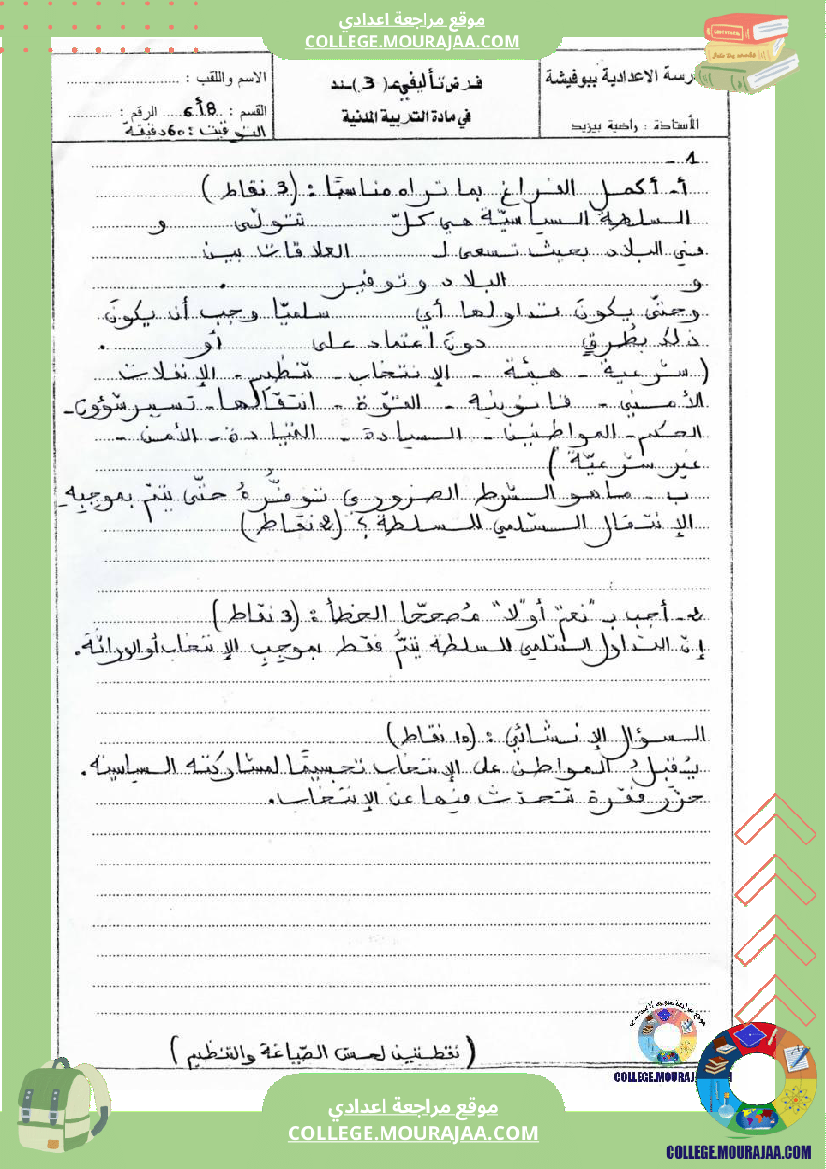 موقع مراجعة اعدادي
COLLEGE.MOURAJAA.COM
المدرسة الاعدادية ببوفيشة
الأستاذة : راضية بيزيد
فرض تأليفي عـ(3)ـدد
في مادة التربية المدنية
الاسم واللقب : ..............................
القسم : 8أ6 الرقم : ............
التوقيت : 60 دقيقة
1 -
أ- أكمل الفراغ بما تراه مناسبًا : (3 نقاط)
السلطة السياسيّة هي كلّ ............ تتولّى ............ و ............
في البلاد بحيث تسعى لـ ............ العلاقات بين ............
و ............ البلاد وتوفير ............ .
وحتّى يكونَ تداولها أي ............ سلميّا وجب أن يكونَ
ذلك بطُرقٍ ............ دونَ اعتماد على ............ أو ............ .
( شرعية - هيئة - الإنتخاب - تنظيم - الإنفلات
الأمني - قانونية - القوّة - انتقالها - تسيير شؤون -
الحكم - المواطنين - السيادة - القيادة - الأمن -
غير شرعيّة )
ب - ماهو الشرط الضروري توفّرهُ حتّى يتمّ بموجبهِ
الإنتقال السّلمي للسلطة ؟ (2 نقاط)
2- أجب بـ "نعم أو لا" مُصحّحا الخطأ : (3 نقاط)
إنّ التداول السّلمي للسلطة يتمُّ فقط بموجبِ الإنتخاب أو الوراثة.
السؤال الإنشائي : (10 نقاط)
يُقبلُ المواطن على الإنتخاب تجسيمًا لمشاركته السياسية.
حرّر فقرة تتحدّث فيها عن الإنتخاب.
(نقطتين لحسن الصّياغة والتنظيم)
موقع مراجعة اعدادي
COLLEGE.MOURAJAA.COM
COLLEGE.MOURAJAA.COM
موقع مراجعة اعدادي
COLLEGE.MOURAJAA.COM